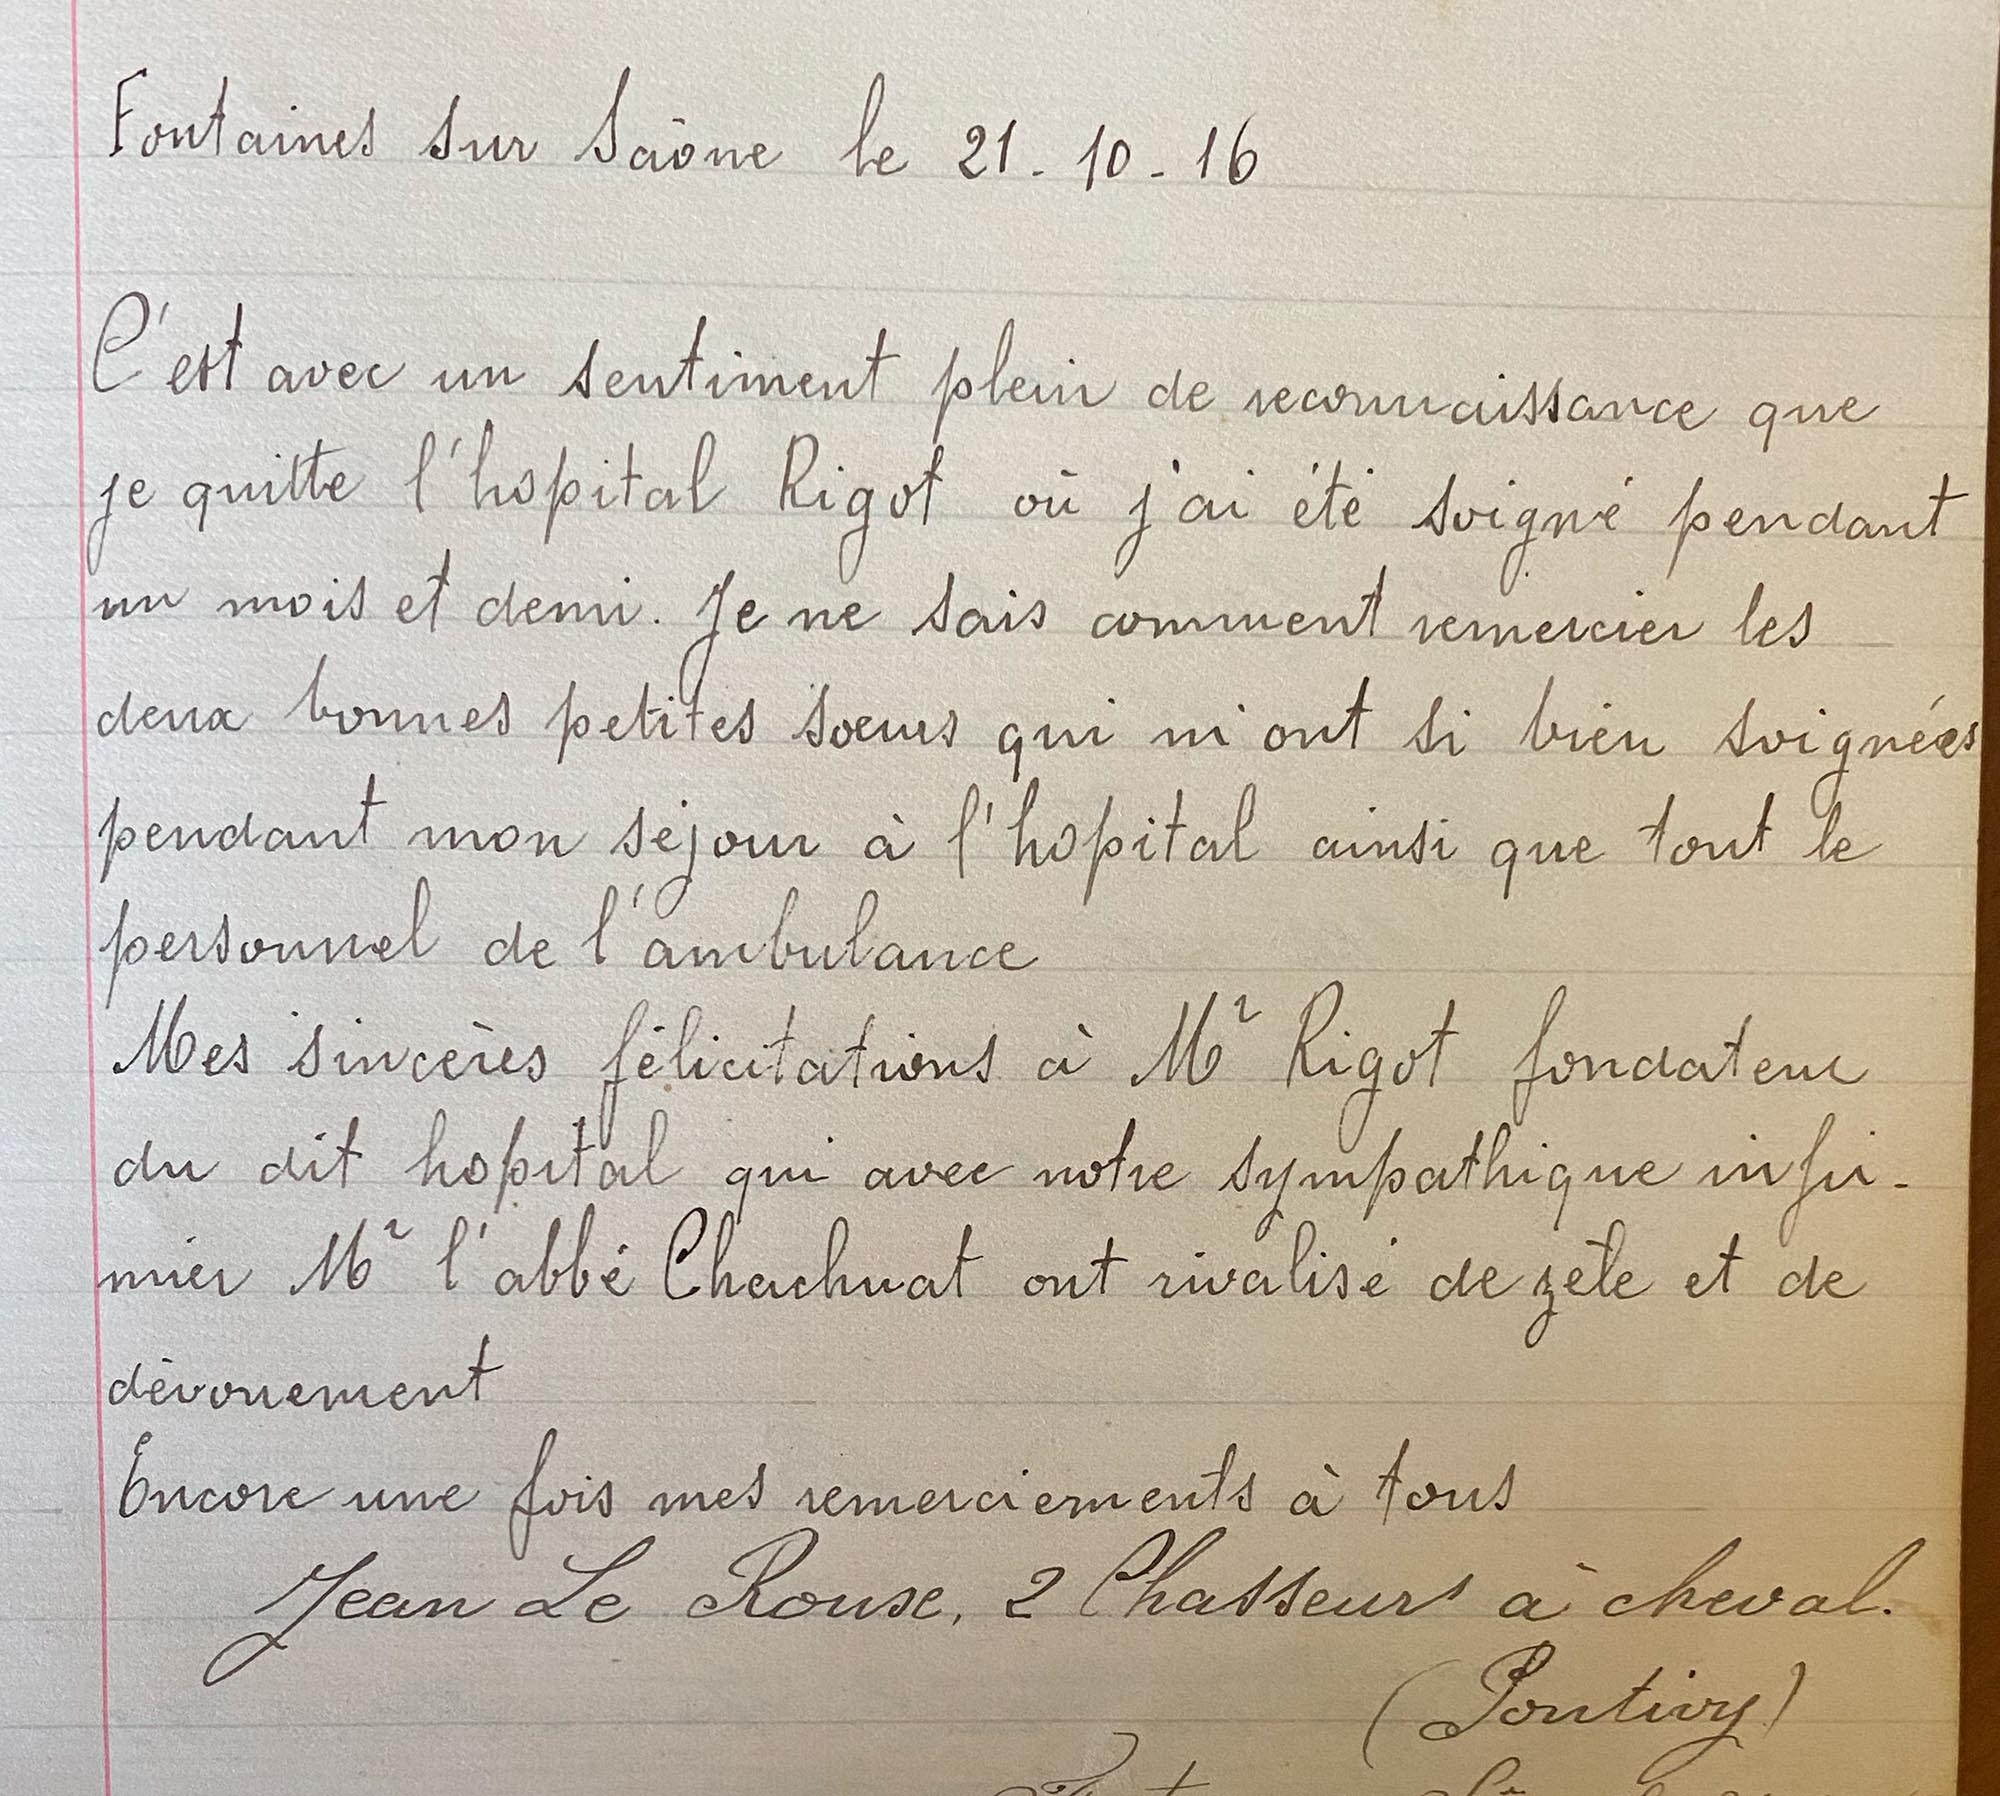 Fontaines sur Saône le 21 - 10 - 16
C'est avec un sentiment plein de reconnaissance que
je quitte l'hopital Rigot où j'ai été soigné pendant
un mois et demi. Je ne sais comment remercier les
deux bonnes petites soeurs qui m'ont si bien soignées
pendant mon séjour à l'hopital ainsi que tout le
personnel de l'ambulance
Mes sincères félicitations à Mr Rigot fondateur
du dit hopital qui avec notre sympathique infir-
mier Mr l'abbé Chachuat ont rivalisé de zèle et de
dévouement
Encore une fois mes remerciements à tous
Jean Le Rouse, 2 Chasseurs à cheval.
(Pontivy)